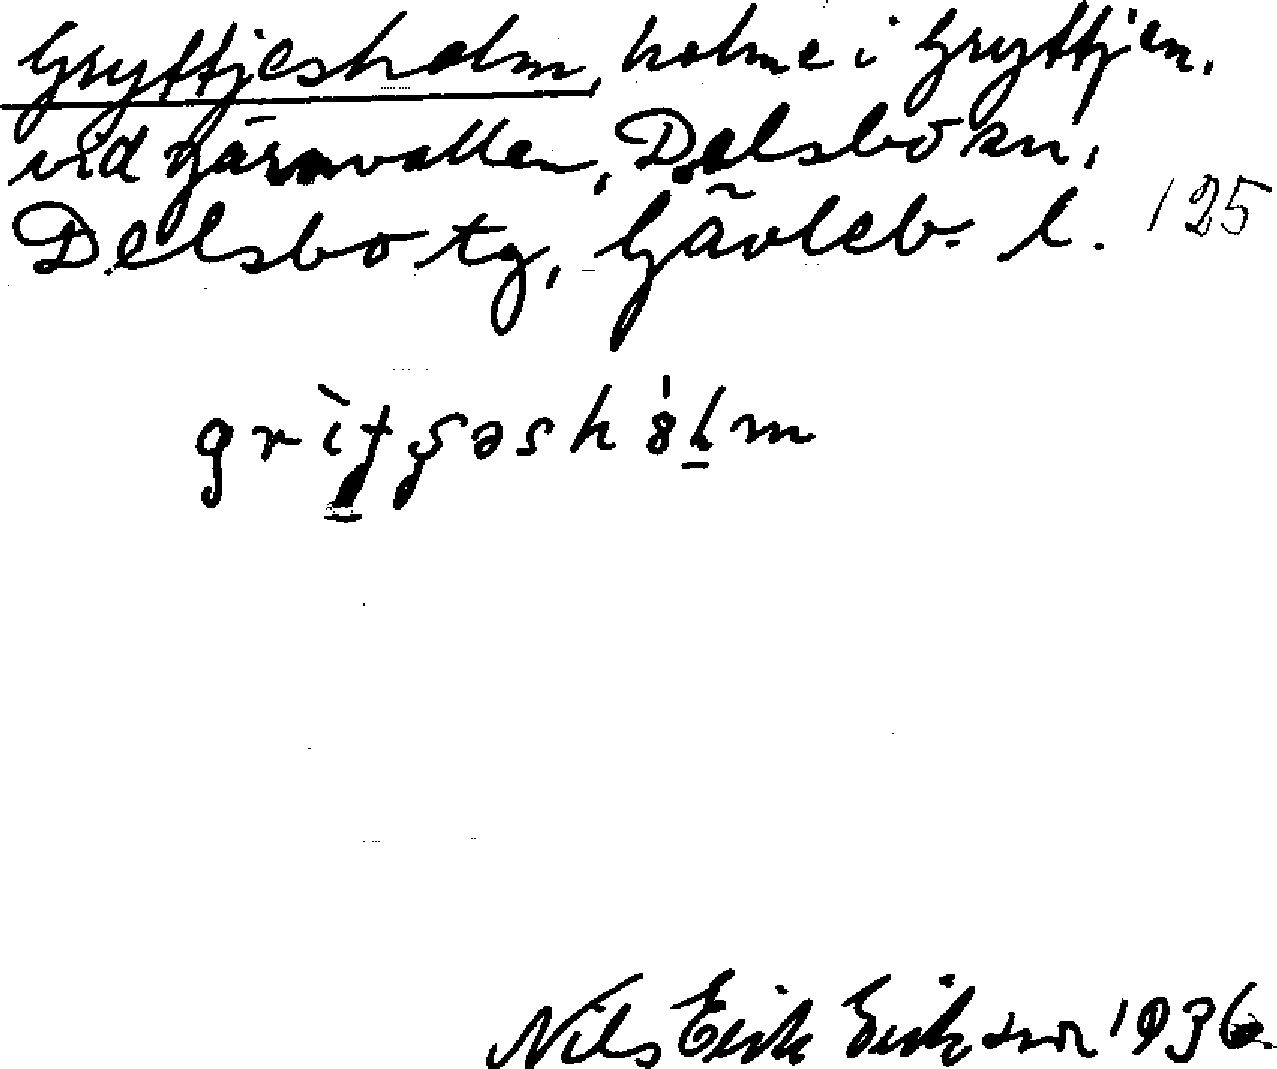 Gryttjesholm, holme i Gryttjen,
vid Tjärnvallen, Delsbo sn,
Delsbo tg, Gävleb. l. 125
Nils Erik Eriksson 1936.